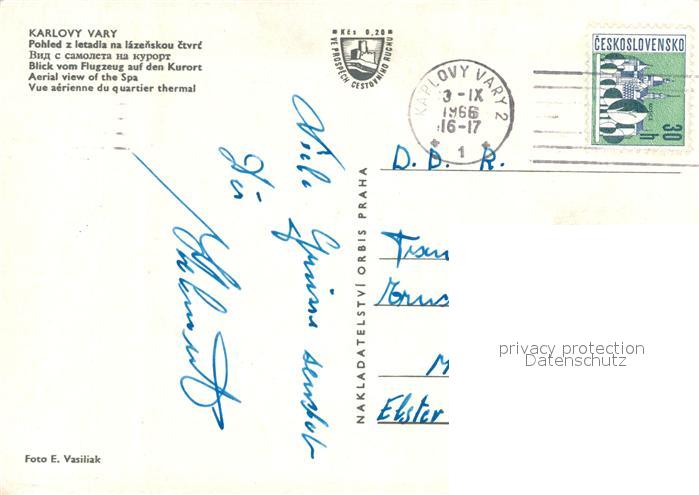 KARLOVY VARY
Pohled z letadla na lázeňskou čtvrť
Вид с самолета на курорт
Blick vom Flugzeug auf den Kurort
Aerial view of the Spa
Vue aérienne du quartier thermal
Kčs 0,20
VE PROSPĚCH CESTOVNÍHO RUCHU
KARLOVY VARY 2
3-IX
1966
16-17
1
ČESKOSLOVENSKO
30 h
D. D. R.
Viele Grüsse sendet
Dir
Helmut
NAKLADATELSTVÍ ORBIS PRAHA
Frau
M
Elster
privacy protection
Datenschutz
Foto E. Vasiliak